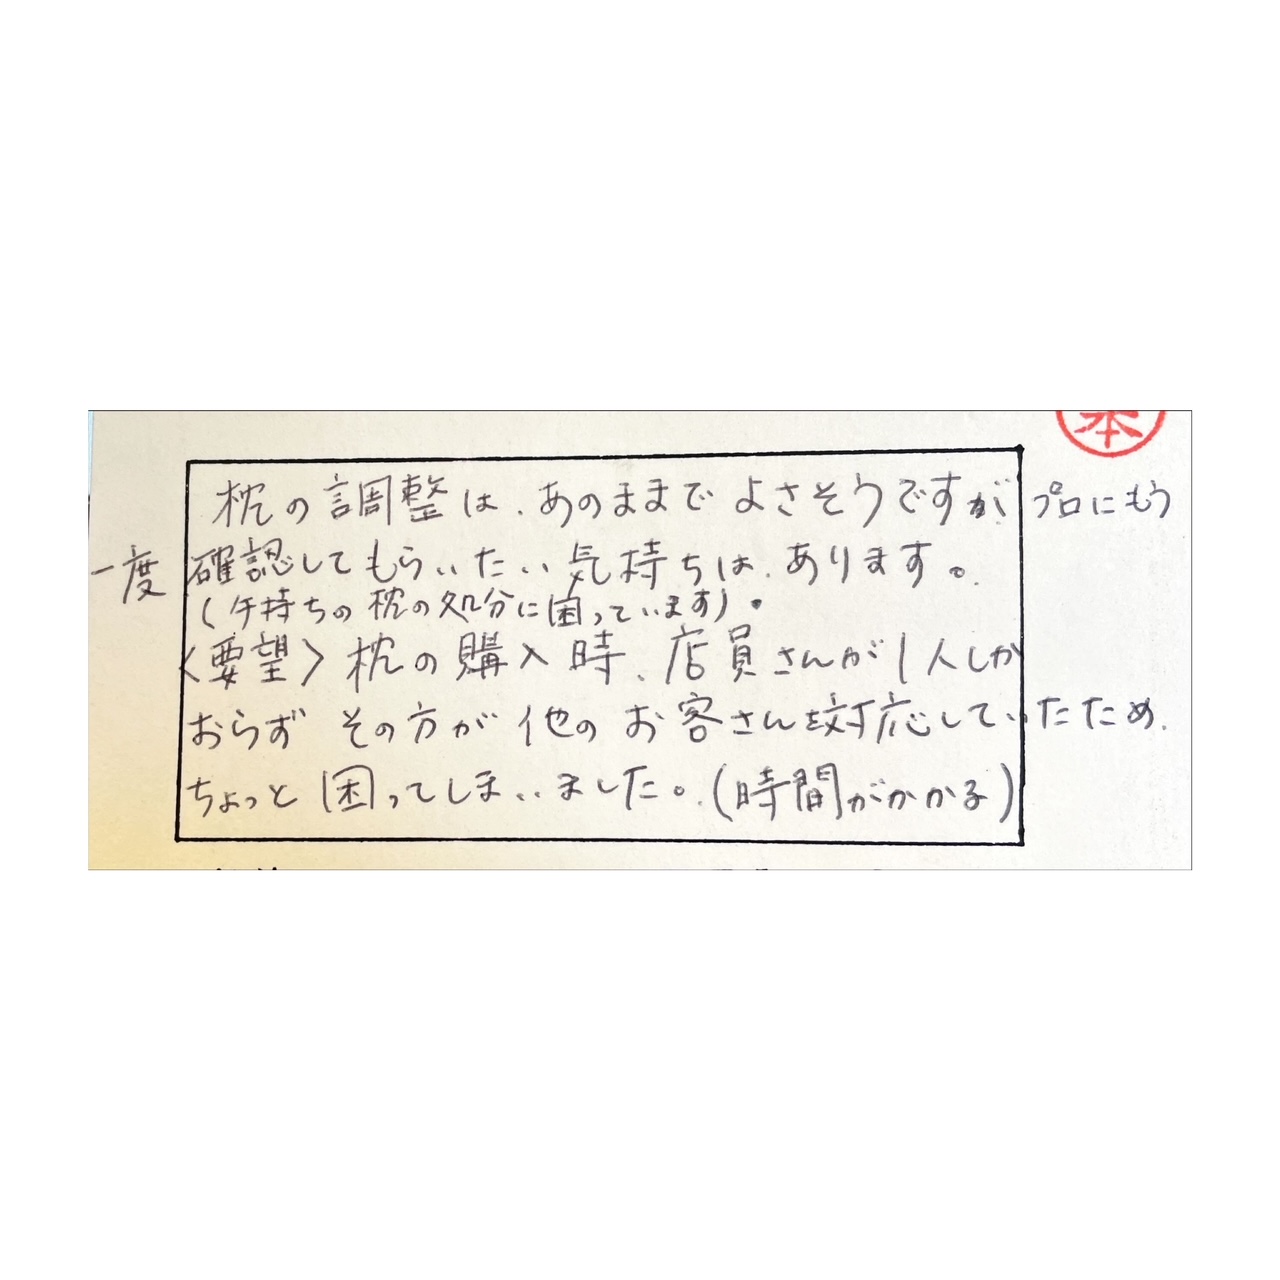 本
枕の調整は、あのままで よさそうですが、プロにもう
一度 確認してもらいたい気持ちは、あります。
(手持ちの枕の処分に困っています)。
〈要望〉枕の購入時、店員さんが1人しか
おらず その方が 他の お客さん対応していたため、
ちょっと 困ってしまいました。(時間がかかる)